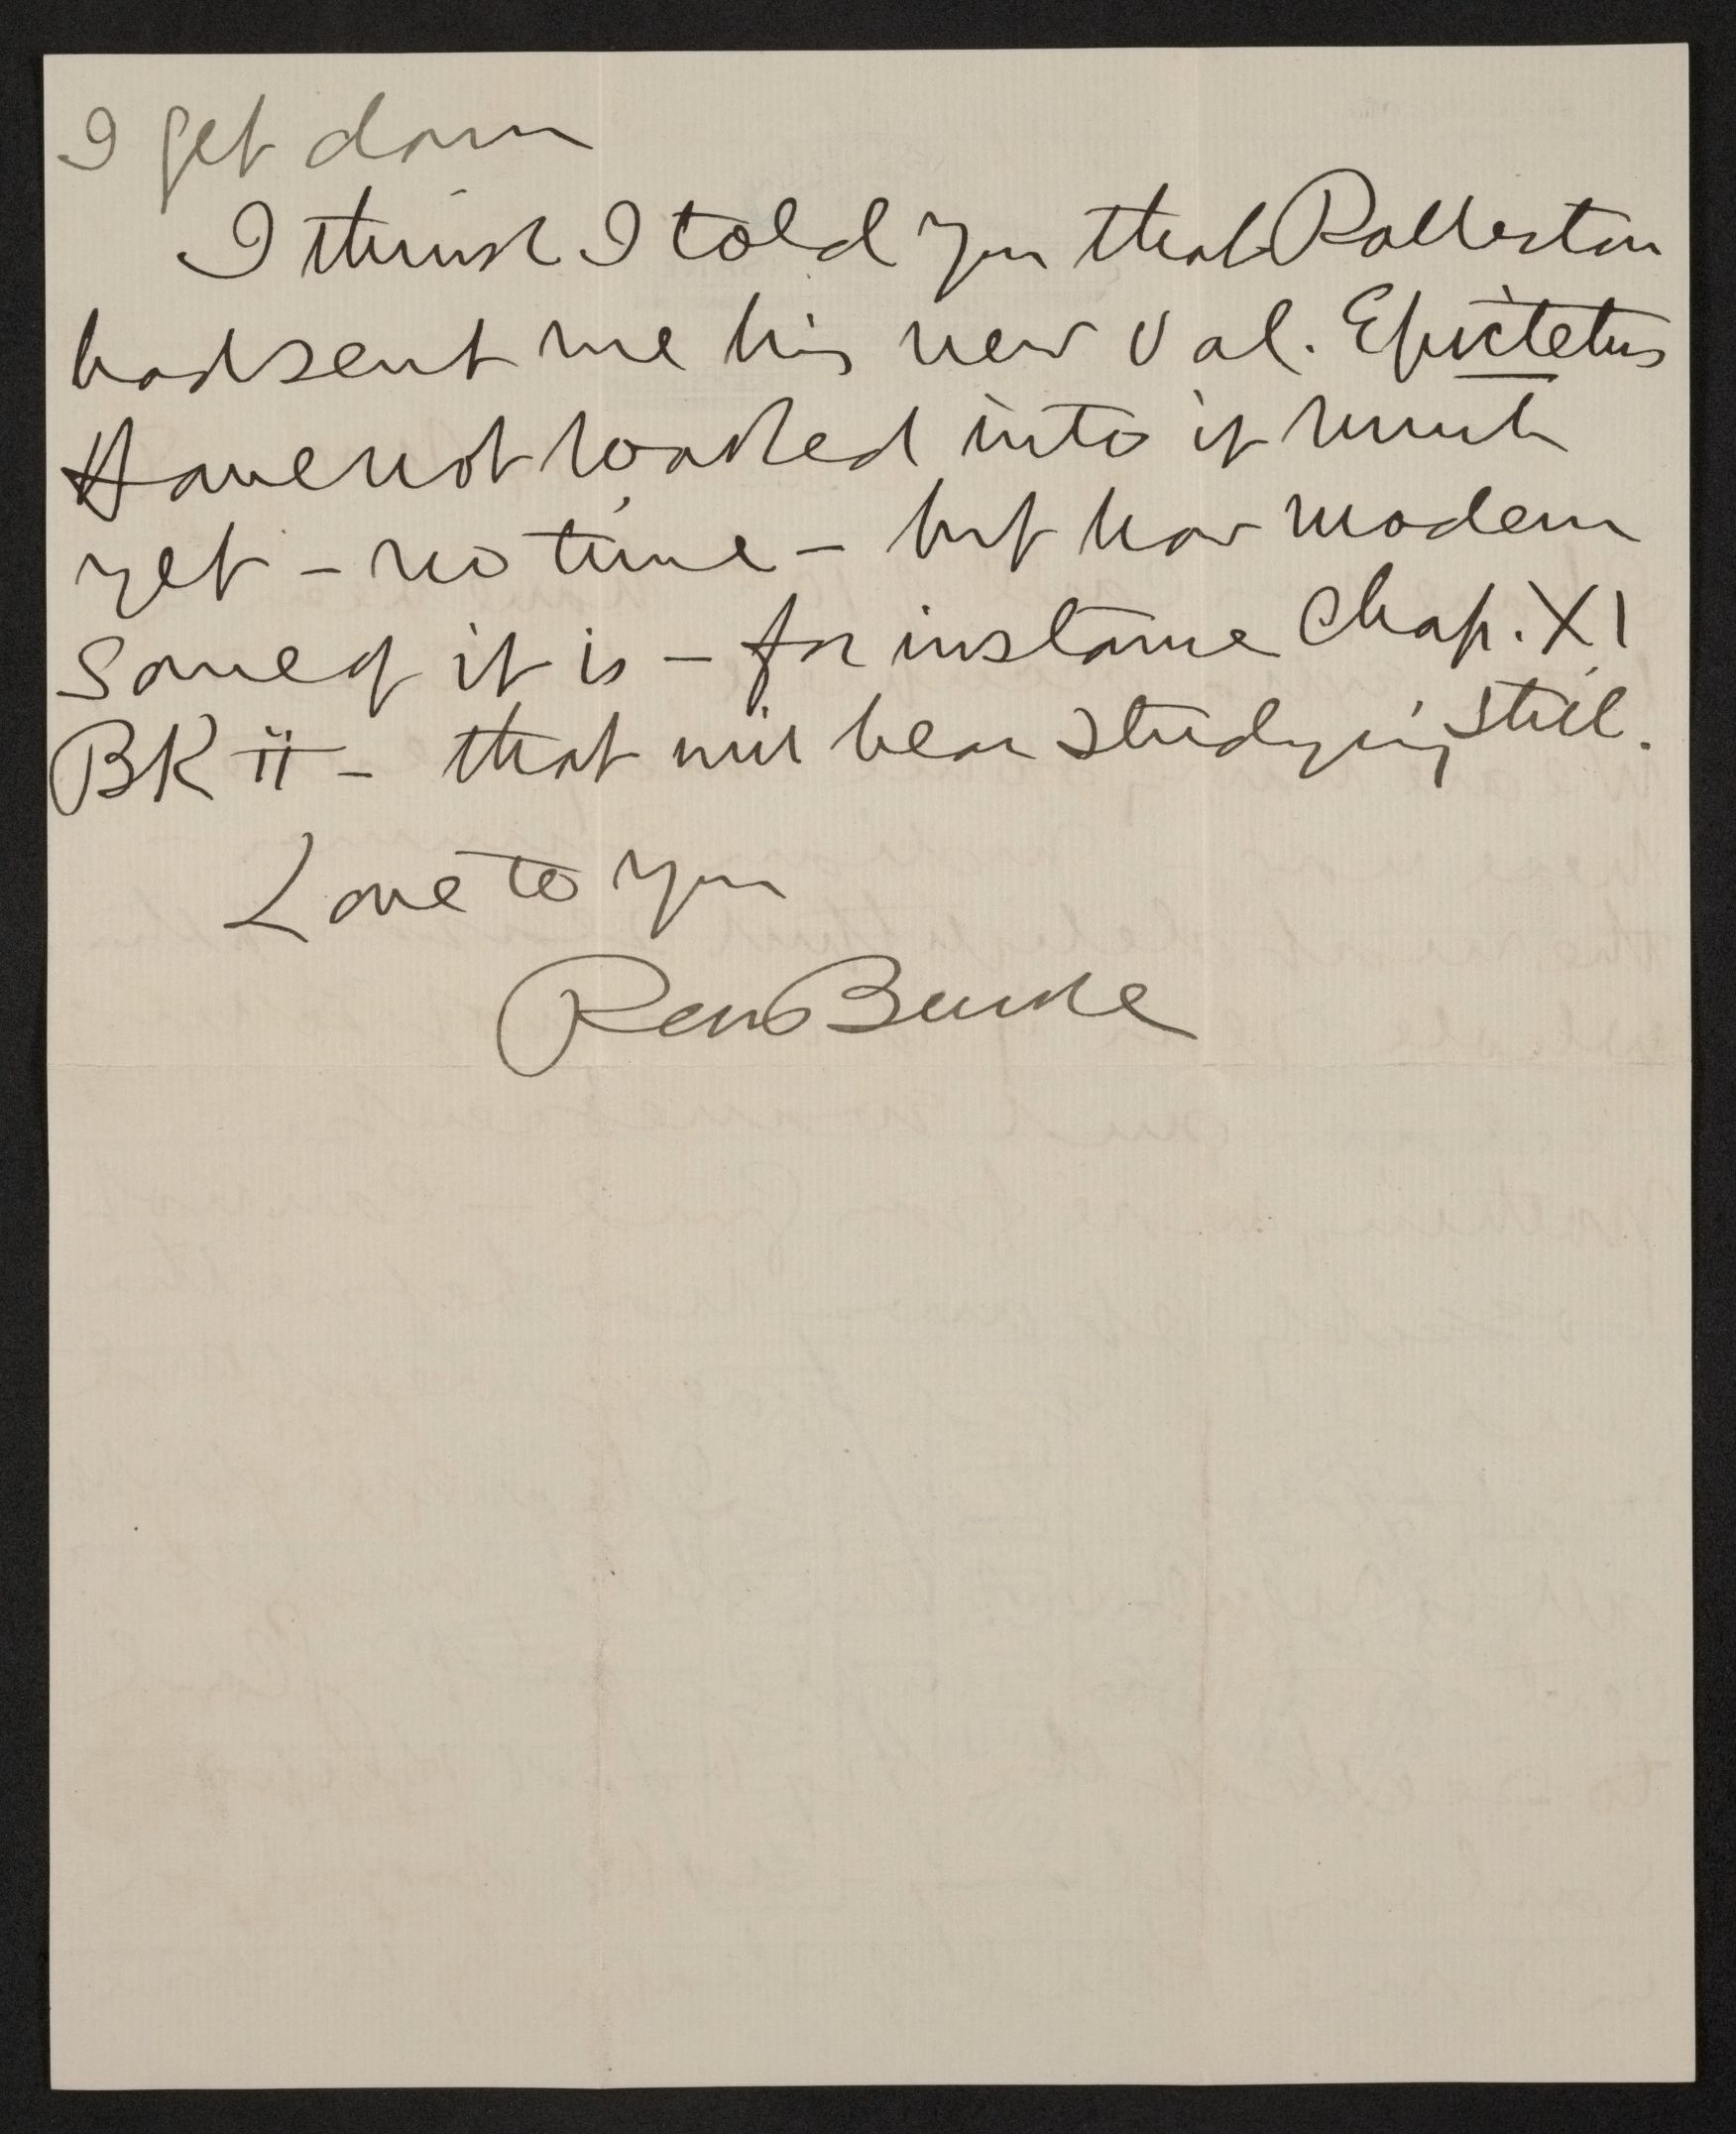 I get down
I think I told you that Rolleston
had sent me his new vol. Epictetus
Have not looked into it much
yet – no time – but how modern
some of it is – for instance Chap. XI
BK ii – that will bear studying still.
Love to you
RM Bucke